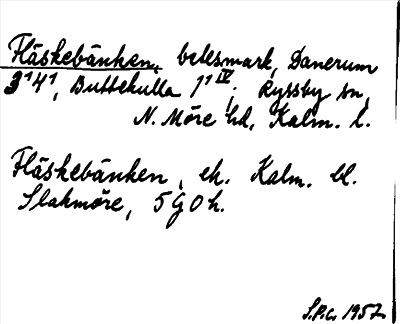 Fläskebänken, betesmark, Danerum
3¹4¹, Buttekulla 1¹ᴵⱽ; Ryssby sn,
N. Möre hd, Kalm. l.
Fläskebänken, ek. Kalm. bl.
Slakmöre, 5 G O h.
S.P.G. 1957